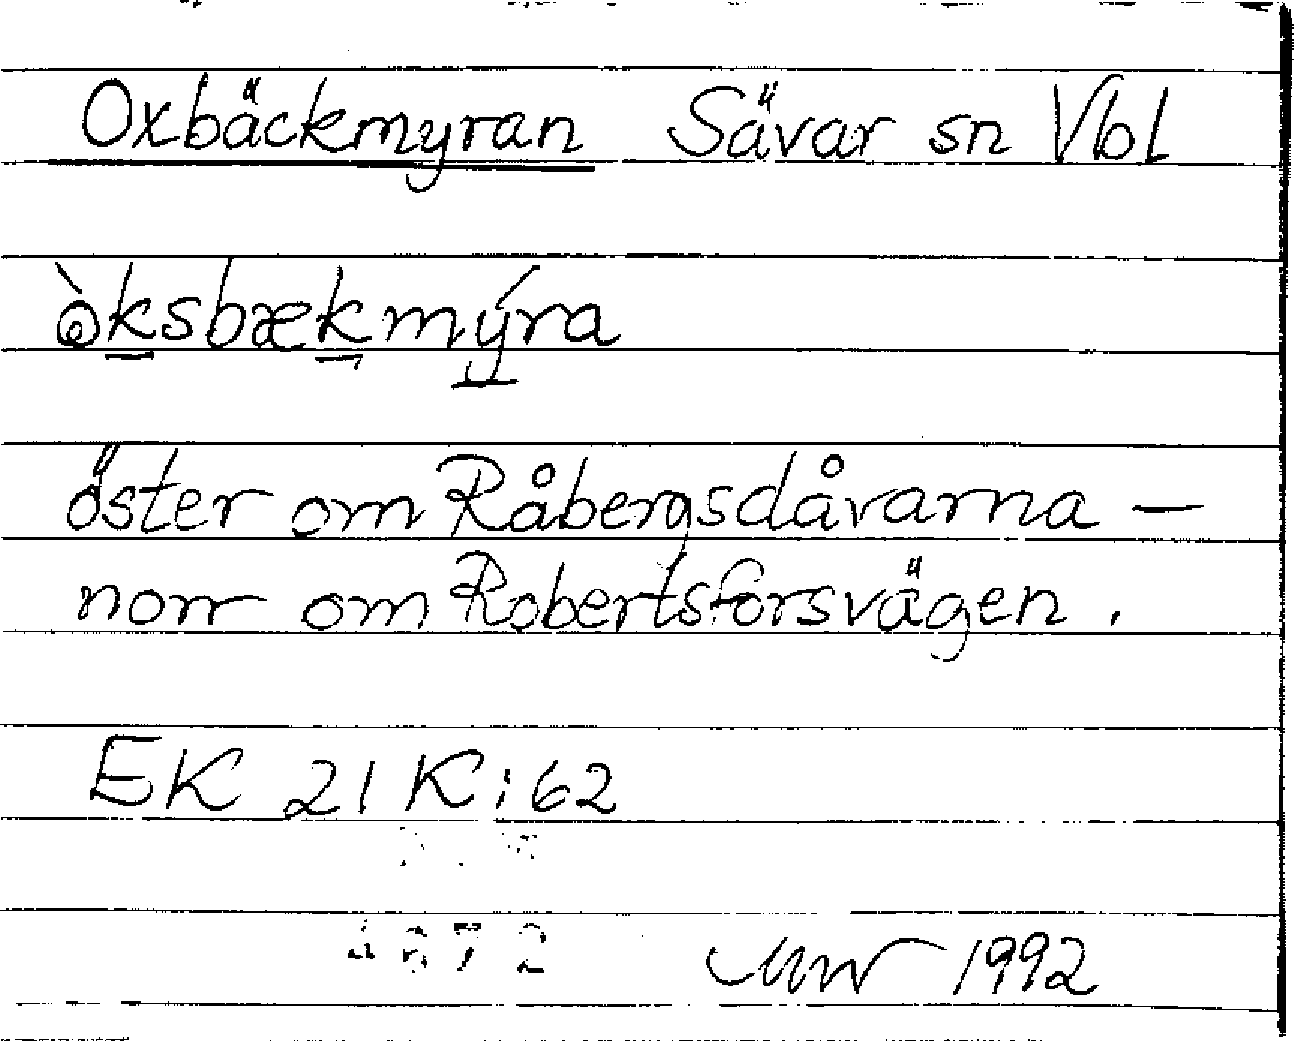 Oxbäckmyran Sävar sn Vbl
òksbækmýra
öster om Råbergsdåvarna —
norr om Robertsforsvägen.
EK 21 K:62
1992